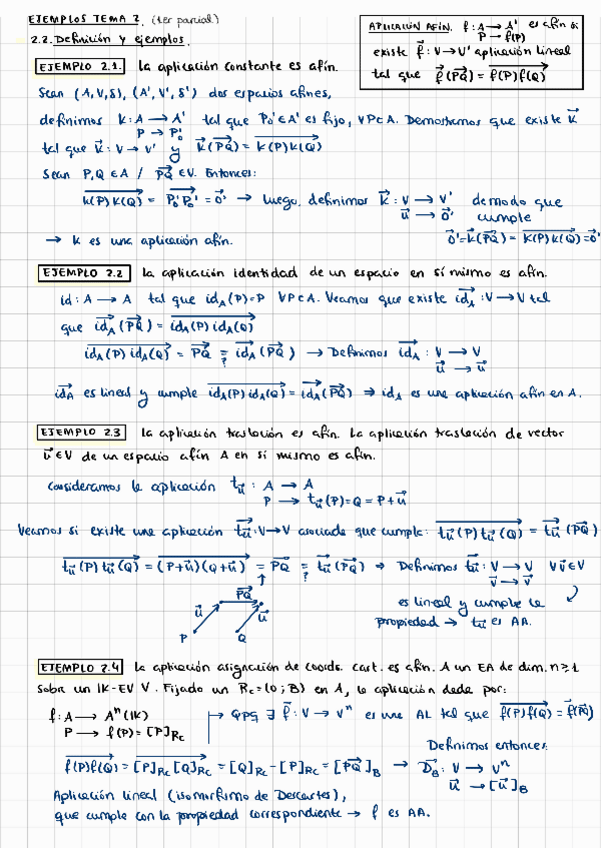 EJEMPLOS TEMA 2. (1er parcial)
2.2. Definición y ejemplos.
APLICACIÓN AFÍN. f: A → A' es afín si
P → f(P)
existe f⃗: V → V' aplicación lineal
tal que f⃗(PQ⃗) = f(P)f(Q)⃗
EJEMPLO 2.1. La aplicación constante es afín.
Sean (A,V,δ), (A',V',δ') dos espacios afines,
definimos k: A → A' tal que P₀' ∈ A' es fijo, ∀P∈A. Demostramos que existe k⃗
P → P₀'
tal que k⃗: V → V' y k⃗(PQ⃗) = k(P)k(Q)⃗
Sean P,Q ∈ A / PQ⃗ ∈ V. Entonces:
k(P)k(Q)⃗ = P₀'P₀'⃗ = 0⃗' → luego, definimos k⃗: V → V' de modo que
u⃗ → 0⃗' cumple
→ k es una aplicación afín. 0⃗' = k⃗(PQ⃗) = k(P)k(Q)⃗ = 0⃗'
EJEMPLO 2.2 La aplicación identidad de un espacio en sí mismo es afín.
id: A → A tal que id_A(P)=P ∀P∈A. Veamos que existe id_A⃗: V → V tal
que id_A⃗(PQ⃗) = id_A(P) id_A(Q)⃗
id_A(P) id_A(Q)⃗ = PQ⃗ =? id_A⃗(PQ⃗) → Definimos id_A⃗: V → V
u⃗ → u⃗
id_A⃗ es lineal y cumple id_A(P) id_A(Q)⃗ = id_A⃗(PQ⃗) ⇒ id_A es una aplicación afín en A.
EJEMPLO 2.3 La aplicación traslación es afín. La aplicación traslación de vector
u⃗ ∈ V de un espacio afín A en sí mismo es afín.
Consideramos la aplicación t_u⃗: A → A
P → t_u⃗(P) = Q = P + u⃗
Veamos si existe una aplicación t_u⃗⃗: V → V asociada que cumple: t_u⃗(P) t_u⃗(Q)⃗ = t_u⃗⃗(PQ⃗)
t_u⃗(P) t_u⃗(Q)⃗ = (P+u⃗)(Q+u⃗)⃗ = PQ⃗ =? t_u⃗⃗(PQ⃗) ⇒ Definimos t_u⃗⃗: V → V ∀u⃗∈V
v⃗ → v⃗
PQ⃗
u⃗ u⃗
es lineal y cumple la
P Q
propiedad → t_u⃗ es AA.
EJEMPLO 2.4 La aplicación asignación de coords. cart. es afín. A un EA de dim. n≥1
sobre un IK-EV V. Fijado un Rc=(O;B) en A, la aplicación dada por:
f: A → Aⁿ(IK) → QPQ ∃ f⃗: V → Vⁿ es una AL tal que f(P)f(Q)⃗ = f⃗(PQ⃗)
P → f(P) = [P]_Rc
Definimos entonces:
f(P)f(Q)⃗ = [P]_Rc [Q]_Rc⃗ = [Q]_Rc - [P]_Rc = [PQ⃗]_B → D_B⃗: V → Vⁿ
u⃗ → [u⃗]_B
Aplicación lineal (isomorfismo de Descartes),
que cumple con la propiedad correspondiente → f es AA.